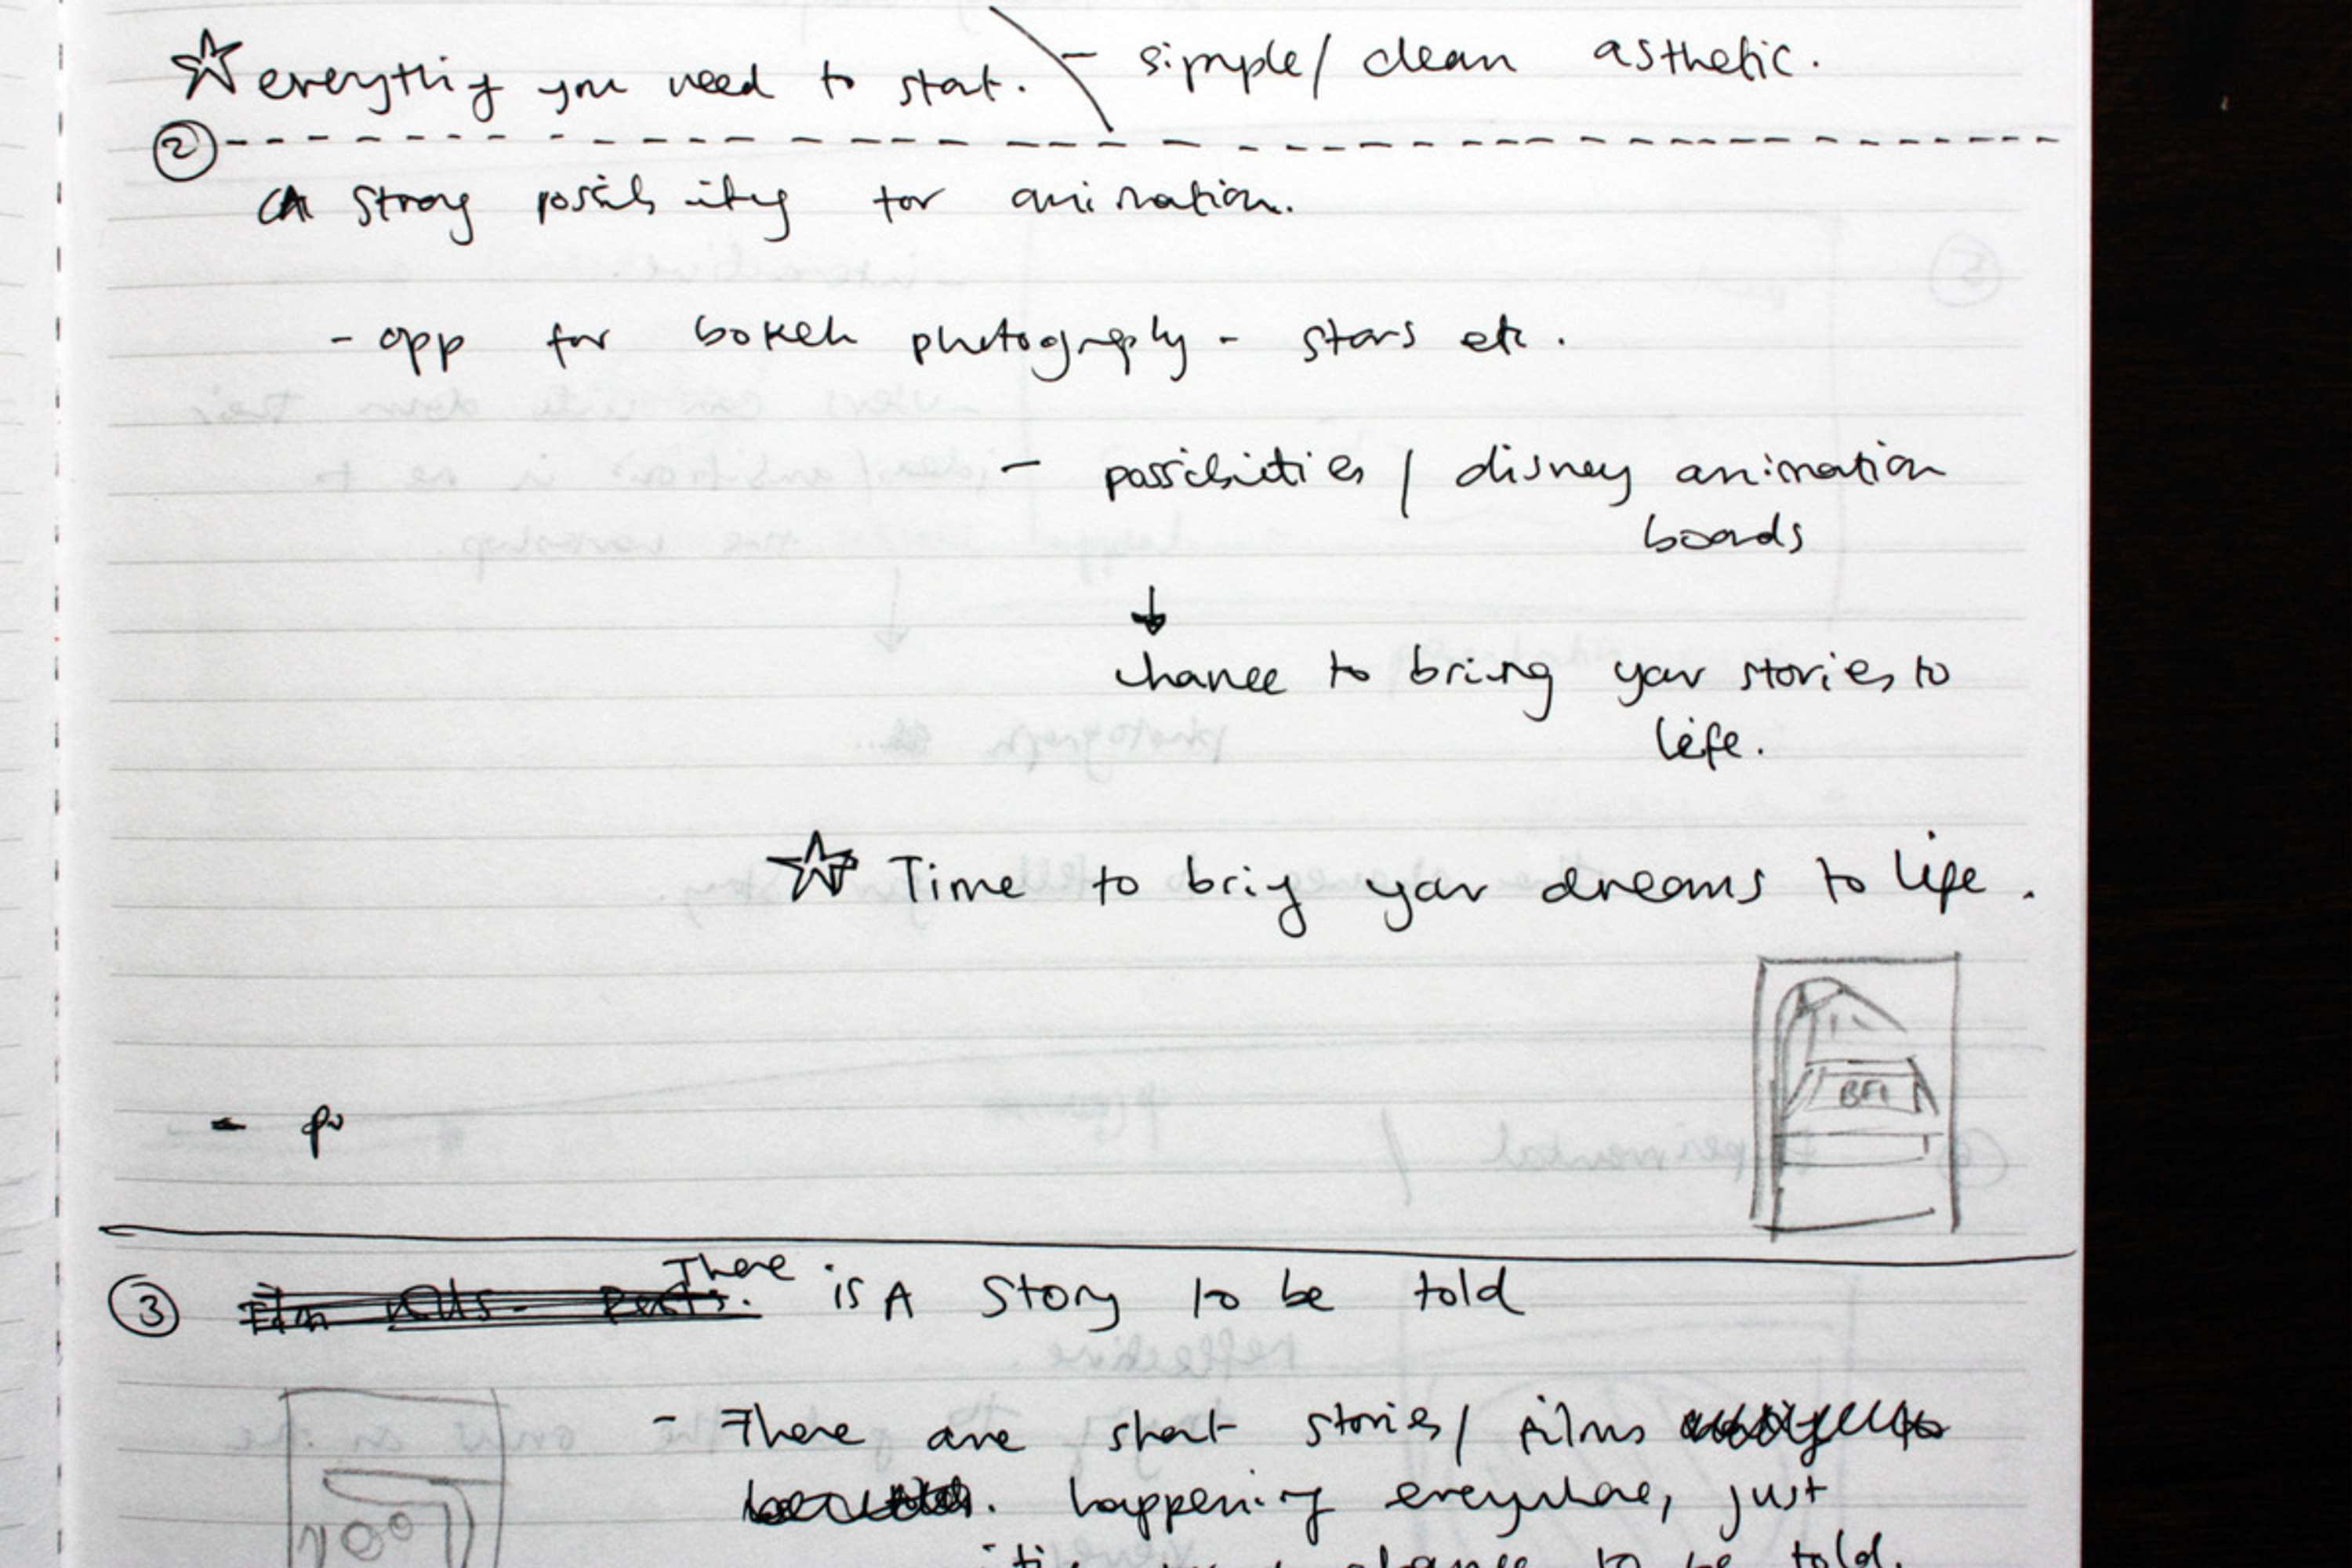 everything you need to start. - simple/ clean asthetic.
2
A strong possibility for animation.
- opp for bokeh photography - stars etc.
- possibilities / disney animation
boards
chance to bring your stories to
life.
Time to bring your dreams to life.
BFI
- po
3 There is A Story to be told
- There are short stories/ films
happening everywhere, just
chance to be told.